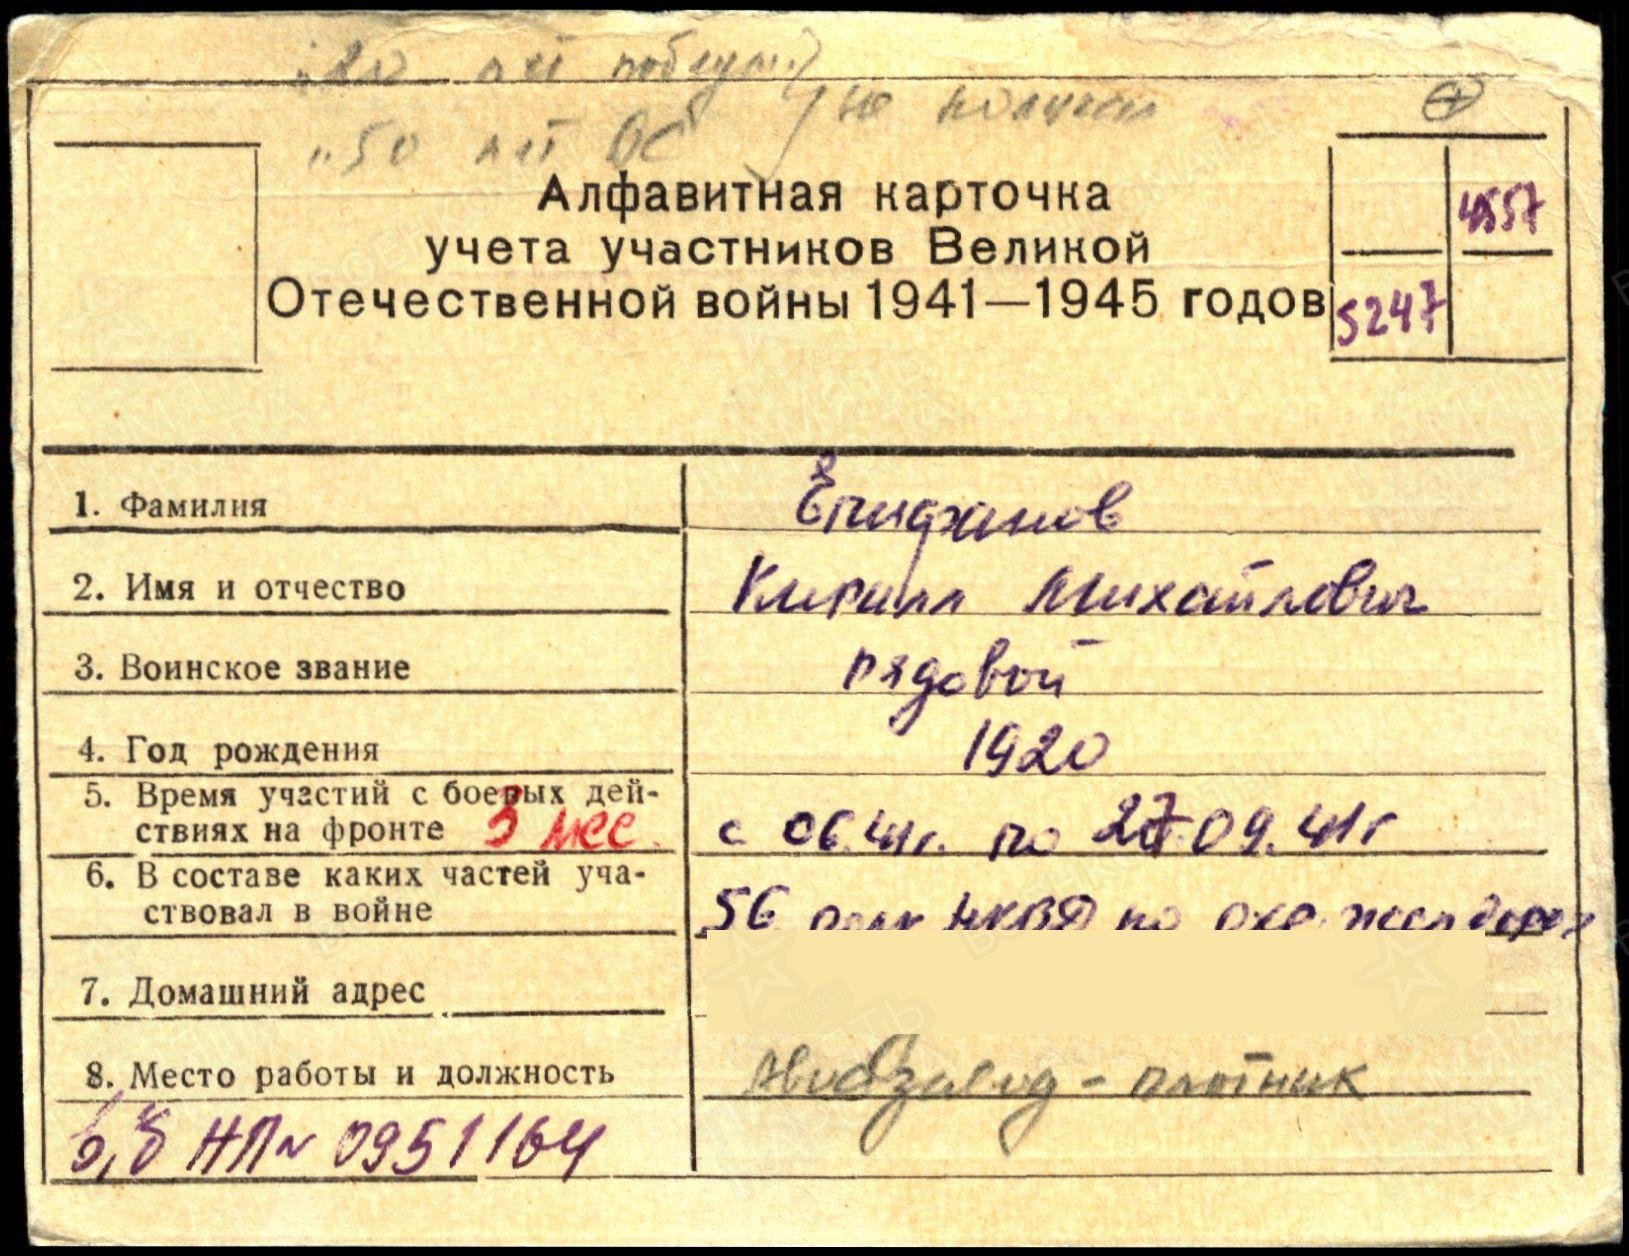 лет победы"
"50 лет ВС" не получал
4557
5247
Алфавитная карточка
учета участников Великой
Отечественной войны 1941—1945 годов
1. Фамилия Епифанов
2. Имя и отчество Кирилл Михайлович
3. Воинское звание рядовой
4. Год рождения 1920
5. Время участий с боевых дей-
ствиях на фронте 3 мес. с 06.41г. по 27.09.41г
6. В составе каких частей уча-
ствовал в войне 56 полк НКВД по охр. жел дорог
7. Домашний адрес
8. Место работы и должность Авиазавод - плотник
в/б НП№ 0951164